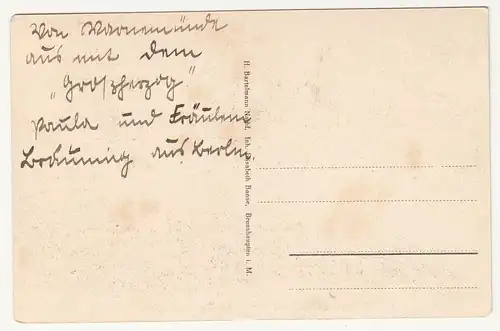 Von Warnemünde
aus mit dem
„Groszherzog"
Paula und Fräulein
Bräuning aus Berlin.
H. Bartelmann Nachf. Inh. Elisabeth Banse, Brunshaupten i. M.